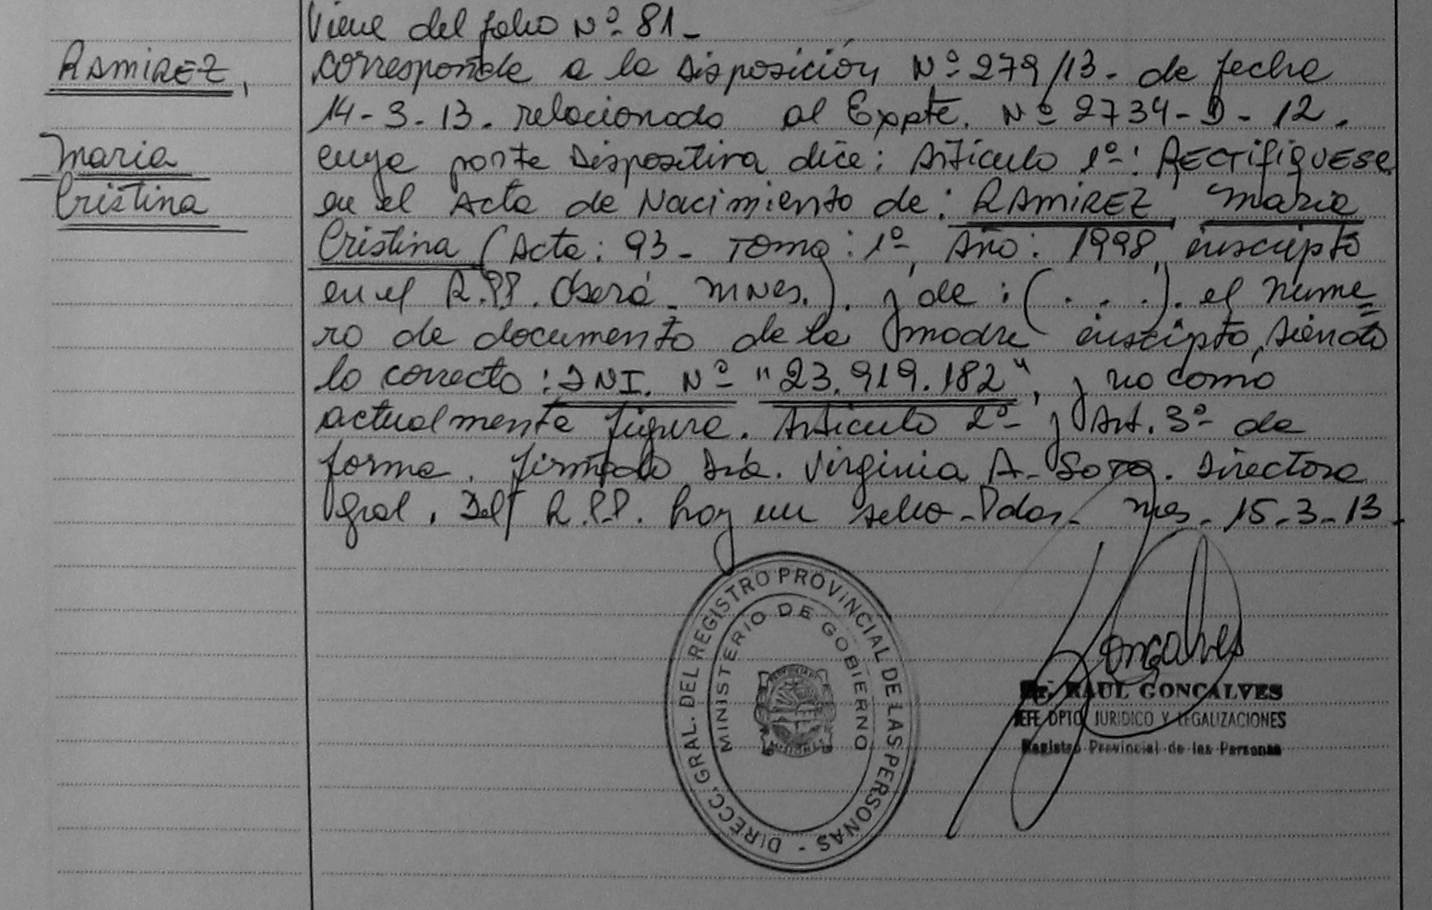 Viene del folio Nº 81-
RAMIREZ,
corresponde a la Disposición Nº 279/13- de fecha
14-3-13. relacionado al Expte. Nº 2734-D-12.
Maria
cuya parte Dispositiva dice: Articulo 1º: RECTIFIQUESE
Cristina
en el Acta de Nacimiento de: RAMIREZ Maria
Cristina (Acta: 93- Tomo: 1º, Año: 1998, inscripto
en el R.PP. Oberá- Mnes.). y de: (...). el nume=
ro de documento de la madre inscripto, siendo
lo correcto: DNI. Nº "23.919.182", y no como
actualmente figura. Articulo 2º y Art. 3º de
forma. firmado Dra. Virginia A. Sosa. Directora
Gral. Del R.P.P. hay un sello-Pdas- Mnes- 15-3-13.
DIRECC. GRAL. DEL REGISTRO PROVINCIAL DE LAS PERSONAS -
MINISTERIO DE GOBIERNO
Goncalves
RAUL GONCALVES
JEFE DPTO. JURIDICO Y LEGALIZACIONES
Registro Provincial de las Personas